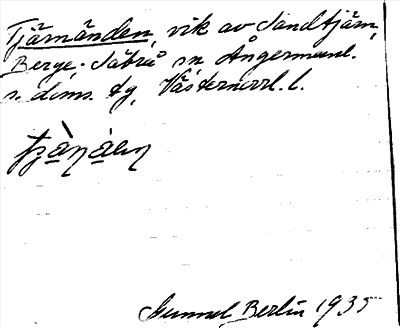 Tjärnänden, vik av Sandtjärn,
Berge. Säbrå sn Ångermanl.
s. doms. tg, Västernorrl. l.
Gunnel Berlin 1935